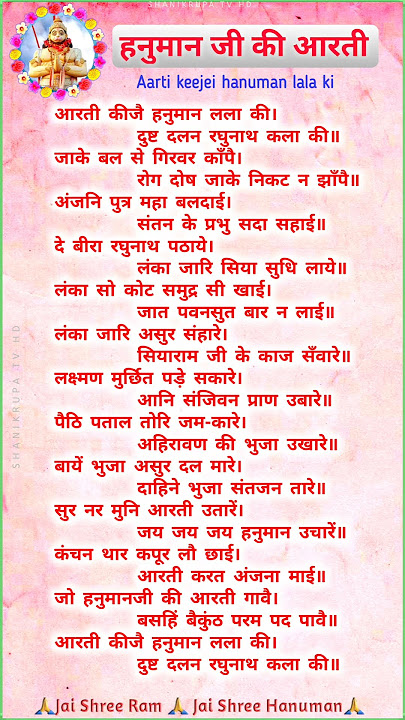 SHANIKRUPA TV HD
हनुमान जी की आरती
Aarti keejei hanuman lala ki
आरती कीजै हनुमान लला की।
दुष्ट दलन रघुनाथ कला की॥
जाके बल से गिरवर काँपै।
रोग दोष जाके निकट न झाँपै॥
अंजनि पुत्र महा बलदाई।
संतन के प्रभु सदा सहाई॥
दे बीरा रघुनाथ पठाये।
लंका जारि सिया सुधि लाये॥
लंका सो कोट समुद्र सी खाई।
जात पवनसुत बार न लाई॥
लंका जारि असुर संहारे।
सियाराम जी के काज सँवारे॥
लक्ष्मण मुर्छित पड़े सकारे।
आनि संजिवन प्राण उबारे॥
पैठि पताल तोरि जम-कारे।
अहिरावण की भुजा उखारे॥
बायें भुजा असुर दल मारे।
दाहिने भुजा संतजन तारे॥
सुर नर मुनि आरती उतारें।
जय जय जय हनुमान उचारें॥
कंचन थार कपूर लौ छाई।
आरती करत अंजना माई॥
जो हनुमानजी की आरती गावै।
बसहिं बैकुंठ परम पद पावै॥
आरती कीजै हनुमान लला की।
दुष्ट दलन रघुनाथ कला की॥
🙏Jai Shree Ram 🙏 Jai Shree Hanuman🙏
SHANIKRUPA TV HD